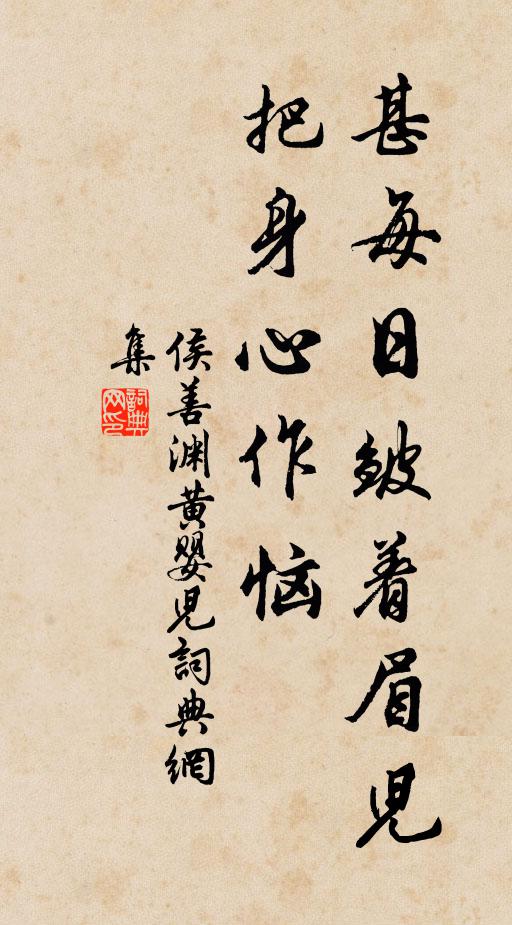 甚每日皱着眉児
把身心作恼
侯善渊黄婴児詞典網
集
詞典
网印